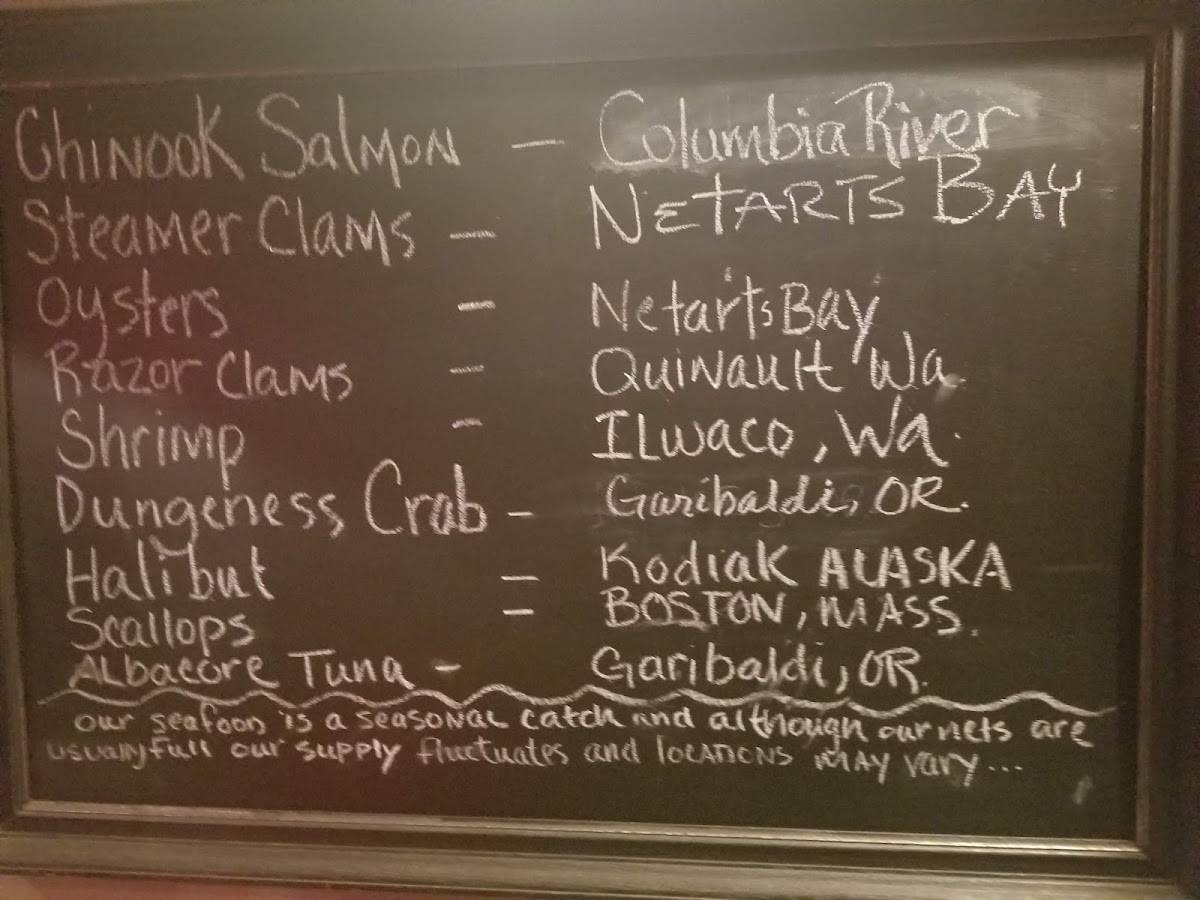 Chinook Salmon - Columbia River
Steamer Clams - Netarts Bay
Oysters - Netarts Bay
Razor Clams - Quinault Wa.
Shrimp - Ilwaco, Wa.
Dungeness Crab - Garibaldi, OR.
Halibut - Kodiak ALASKA
Scallops - BOSTON, MASS.
Albacore Tuna - Garibaldi, OR.
our seafood is a seasonal catch and although our nets are
usually full our supply fluctuates and locations may vary...